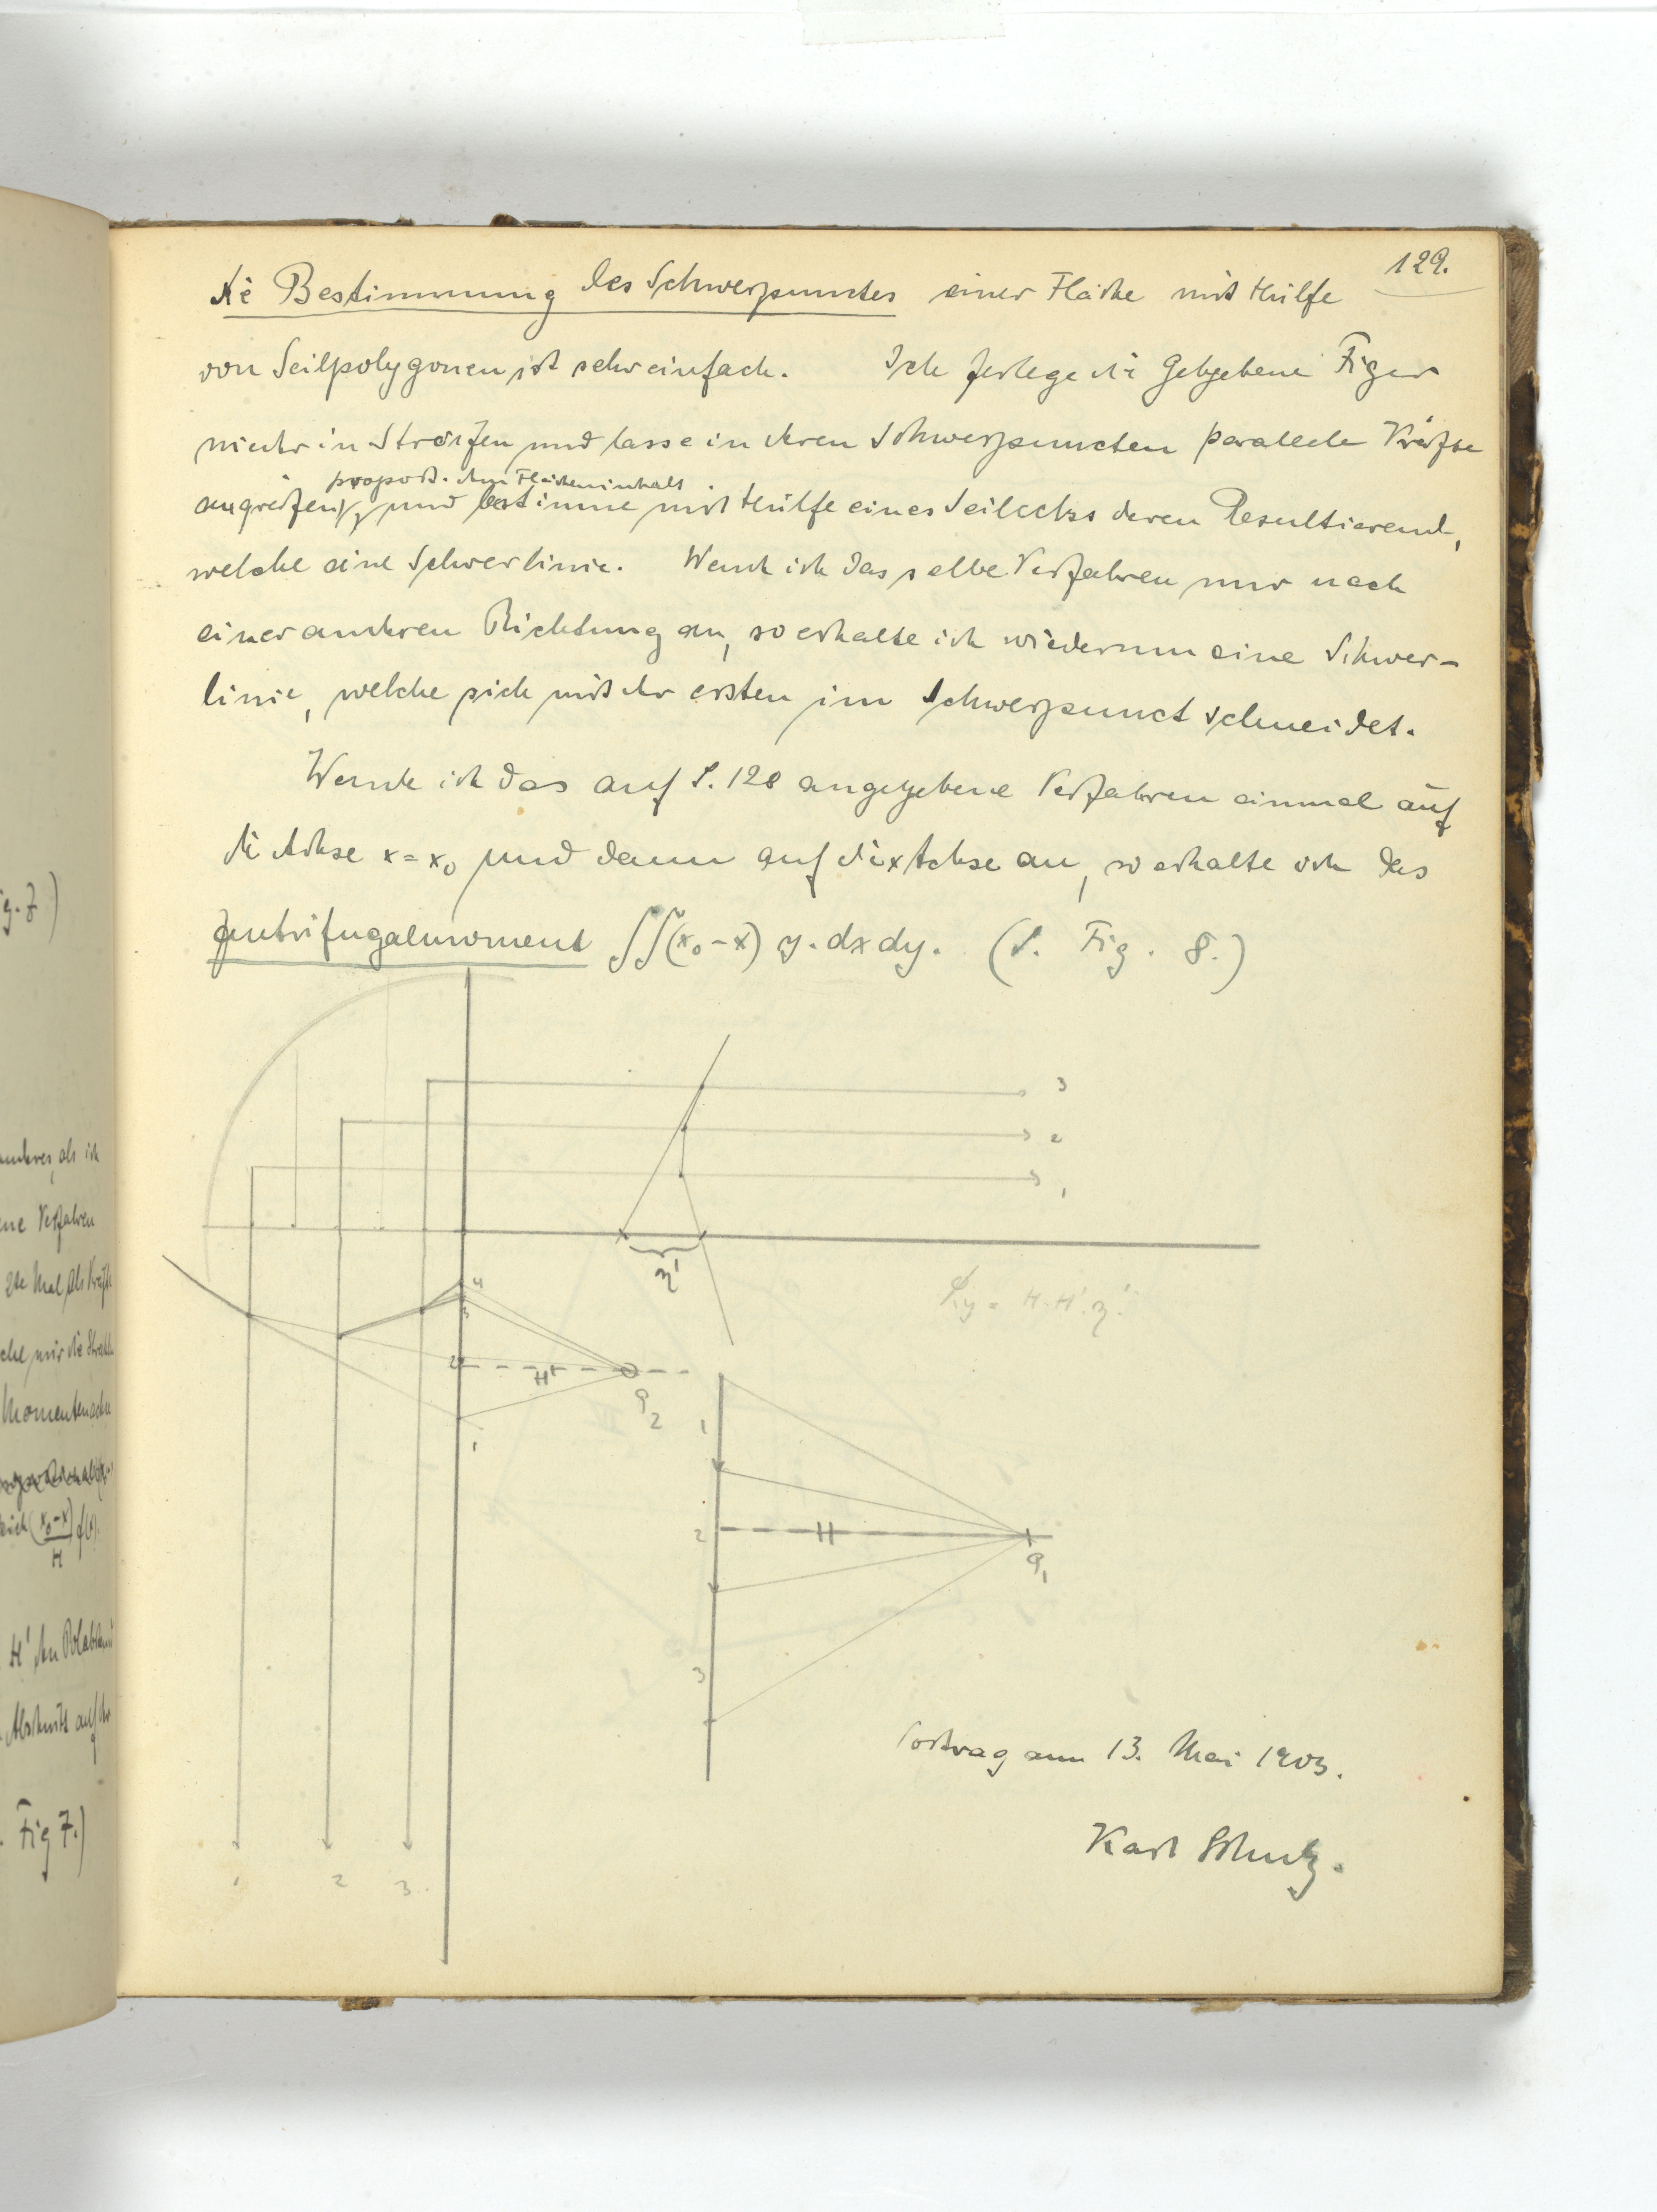 129.
Die Bestimmung des Schwerpunctes einer Fläche mit Hülfe
von Seilpolygonen ist sehr einfach. Ich zerlege die gebgebene Figur
wieder in Streifen und lasse in deren Schwerpuncten parallele Kräfte
proport. dem Flächeninhalt
angreifen, und bestimme mit Hülfe eines Seilecks deren Resultierende,
welche eine Schwerlinie. Wende ich dasselbe Verfahren nur nach
einer anderen Richtung an, so erhalte ich wiederum eine Schwer-
linie, welche sich mit der ersten im Schwerpunct schneidet.
Wende ich das auf S. 128 angegebene Verfahren einmal auf
die Achse x = x₀ und dann auf die x Achse an, so erhalte ich das
Zentrifugalmoment ∫∫(x₀-x) y. dx dy. (S. Fig. 8.)
3
2
1
η'
4
3
Jxy = H. H'. η'.
2
H'
P2
1
1
2
H
P1
3
1 2 3.
Vortrag am 13. Mai 1903.
Karl
ig. 7)
anderes, als ich
ene Verfahren
2te Mal als Kräfte
Momentenachse
(x₀-x)/H f(x).
H' den Polabstand
Abschnitt auf der
Fig 7.)